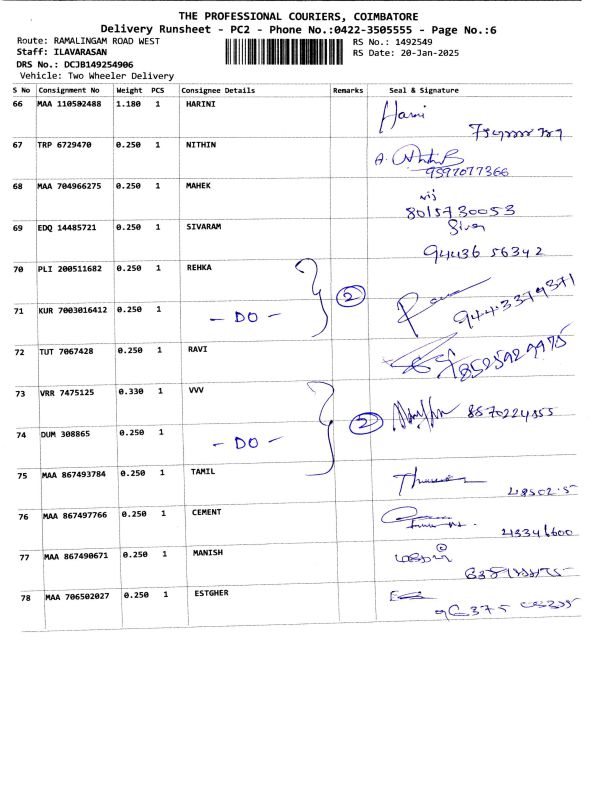 THE PROFESSIONAL COURIERS, COIMBATORE
Delivery Runsheet - PC2 - Phone No.:0422-3505555 - Page No.:6
Route: RAMALINGAM ROAD WEST RS No.: 1492549
Staff: ILAVARASAN RS Date: 20-Jan-2025
DRS No.: DCJB149254906
Vehicle: Two Wheeler Delivery
S No Consignment No Weight PCS Consignee Details Remarks Seal & Signature
66 MAA 110502488 1.180 1 HARINI Harini
67 TRP 6729470 0.250 1 NITHIN A.
9597077366
68 MAA 704966275 0.250 1 MAHEK vij
8015730053
69 EDQ 14485721 0.250 1 SIVARAM Siva
94436 56342
70 PLI 200511682 0.250 1 REHKA 2
71 KUR 7003016412 0.250 1 - DO - 9443379371
72 TUT 7067428 0.250 1 RAVI 8525929975
73 VRR 7475125 0.330 1 VVV 2 8570224355
74 DUM 308865 0.250 1 - DO -
75 MAA 867493784 0.250 1 TAMIL
76 MAA 867497766 0.250 1 CEMENT
77 MAA 867490671 0.250 1 MANISH
78 MAA 706502027 0.250 1 ESTGHER